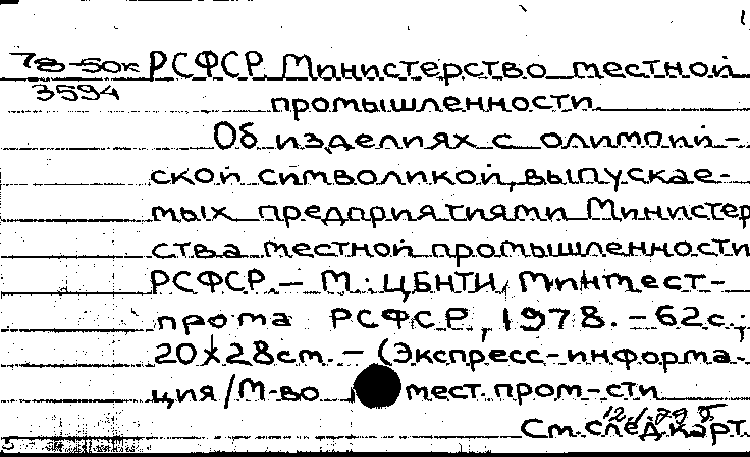 78-50к РСФСР. Министерство местной
3594 промышленности.
Об изделиях с олимпий-
ской символикой, выпускае-
мых предприятиями Министер
ства местной промышленности
РСФСР. – М.: ЦБНТИ Минмест-
прома РСФСР, 1978. – 62 с.;
20x28 см. – (Экспресс-информа-
ция/М-во мест. пром-сти
См. след. карт.
5